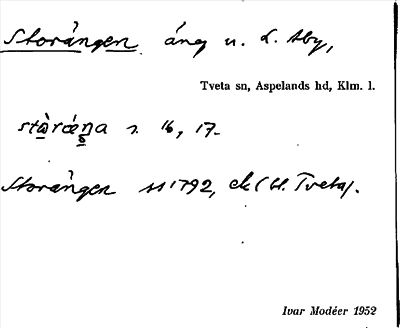 Storängen äng u. L. Aby,
Tveta sn, Aspelands hd, Klm. l.
stàræŋa s. 16, 17.
Storängen ss 1792, ek (st. Tveta).
Ivar Modéer 1952